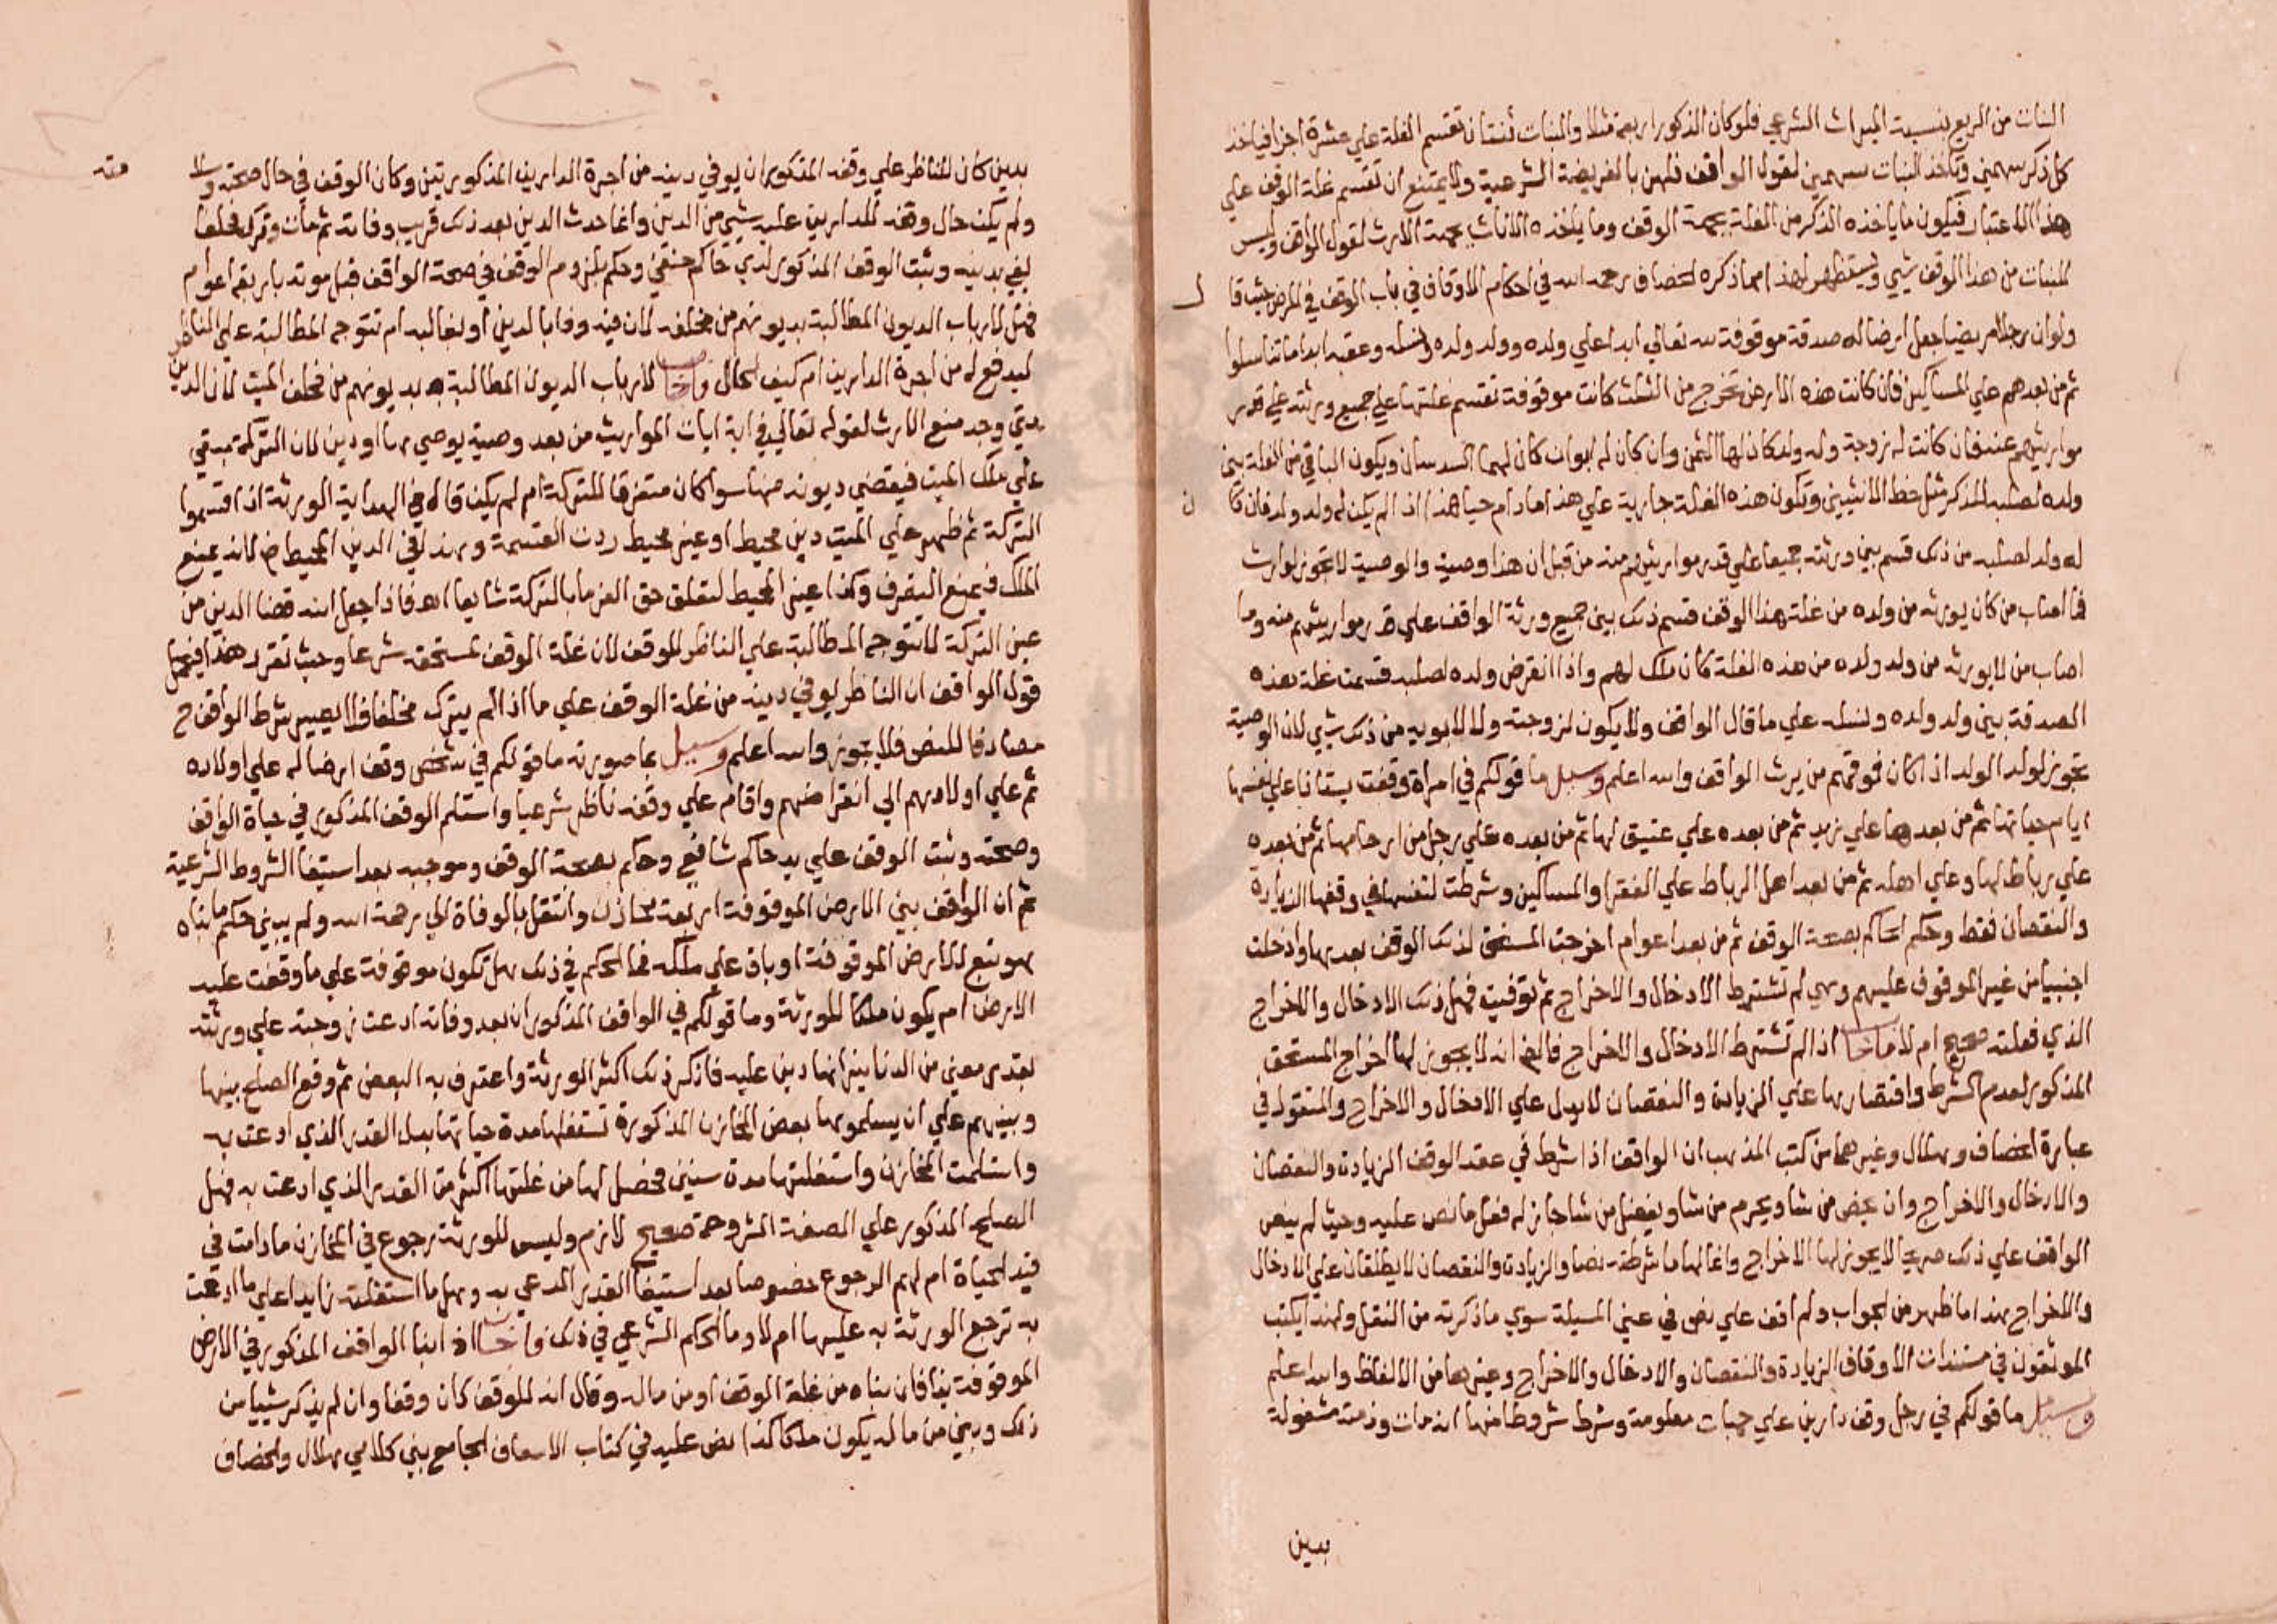 البنات من الريع بنسبة الميراث الشرعي فلو كان الذكور اربعة مثلا والبنات ثنتان تقسم الغلة علي عشرة اجزا فياخذ
كل ذكر سهمين وتاخذ البنات سهمين لقول الواقف فلهن بالفريضة الشرعية ولا يمتنع ان تقسم غلة الوقف علي
هذا الاعتبار فيكون ما ياخذه الذكر من الغلة بجهة الوقف وما ياخذه الاناث بجهة الارث لقول الواقف وليس
للبنات من هذا الوقف شيي ويستظهر لهذا مما ذكره الخصاف رحمه الله في احكام الاوقاف في باب الوقف في المرض حيث قا ل
ولو ان رجلا مريضا جعل ارضا له صدقة موقوفة لله تعالي ابدا علي ولده وولد ولده ونسله وعقبه ابدا ما تناسلوا
ثم من بعدهم علي المساكين فان كانت هذه الارض تخرج من الثلث كانت موقوفة تقسم غلتها علي جميع ورثته علي قدر
مواريثهم عنه فان كانت له زوجة وله ولد كان لها الثمن وان كان له ابوان كان لهما السدسان ويكون الباقي من الغلة بين
ولده لصلبه للذكر مثل حظ الانثيين وتكون هذه الغلة جارية علي هذا ما دام حيا هذا اذا لم يكن له ولد ولد فان كا ن
له ولد لصلبه من ذلك قسم بين ورثته جميعا علي قدر مواريثهم منه من قبل ان هذا وصية والوصية لا تجوز لوارث
فما اصاب من كان يورثه من ولده من غلة هذا الوقف قسم ذلك بين جميع ورثة الواقف علي قدر مواريثهم منه وما
اصاب من لا يورثه من ولد ولده من هذه الغلة كان ملك لهم واذا انقرض ولده لصلبه قسمت غلة هذه
الصدقة بين ولد ولده ونسله علي ما قال الواقف ولا يكون لزوجته ولا لابويه من ذلك شيي لان الوصية
تجوز لولد الولد اذا كان فوقهم من يرث الواقف والله اعلم وسيل ما قولكم في امراة وقفت بستانا علي نفسها
ايام حياتها ثم من بعدها علي زيد ثم من بعده علي عتيق لها ثم من بعده علي رجل من ارحامها ثم من بعده
علي رباط لها وعلي اهله ثم من بعد اهل الرباط علي الفقرا والمساكين وشرطت لنفسها في وقفها الزيادة
والنقصان فقط وحكم الحاكم بصحة الوقف ثم من بعد اعوام اخرجت المستحق لذلك الوقف بعدها وادخلت
اجنبيا من غير الموقوف عليهم وهي لم تشترط الادخال والاخراج ثم توفيت فهل ذلك الادخال والاخراج
الذي فعلته صحيح ام لا فاجاب اذا لم تشترط الادخال والاخراج فالظ انه لا يجوز لها اخراج المستحق
المذكور لعدم الشرط واقتصارها علي الزيادة والنقصان لا يدل علي الادخال والاخراج والمنقول في
عبارة الخصاف وهلال وغيرهما من كتب المذهب ان الواقف اذا شرط في عقد الوقف الزيادة والنقصان
والادخال والاخراج وان يخص من شا ويحرم من شا ويفضل من شا جاز له فعل ما نص عليه وحيث لم ينص
الواقف علي ذلك صريحا لا يجوز لها الاخراج وانما لها ما شرطته نصا والزيادة والنقصان لا يطلقان علي الادخال
والاخراج هذا ما ظهر من الجواب ولم اقف علي نص في عين المسيلة سوي ما ذكرته من النقل ولهذا يكتب
الموثقون في مستندات الاوقاف الزيادة والنقصان والادخال والاخراج وغيرها من الالفاظ والله اعلم
وسيل ما قولكم في رجل وقف دارين علي جهات معلومة وشرط شروطا منها انه مات وذمته مشغولة
بدين
بدين كان للناظر علي وقفه المذكور ان يوفي دينه من اجرة الدارين المذكورتين وكان الوقف في حال صحته وسلا مته
ولم يكن حال وقفه للدارين عليه شيي من الدين وانما حدث الدين بعد ذلك قريب وفاته ثم مات وترك مخلفا
يفي بدينه وثبت الوقف المذكور لدي حاكم حنفي وحكم بلزوم الوقف في صحة الواقف قبل موته باربعة اعوام
فهل لارباب الديون المطالبة بديونهم من مخلفه لان فيه وفا بالدين او بغالبه ام تتوجه المطالبة علي الناظر
ليدفع له من اجرة الدارين ام كيف الحال فاجاب لارباب الديون المطالبة بديونهم من مخلف الميت لان الدين
متي وجد منع الارث لقوله تعالي في اية ايات المواريث من بعد وصية يوصي بها او دين لان التركة تبقي
علي ملك الميت فيقضي ديونه منها سوا كان مستغرقا للتركة ام لم يكن قال في الهداية الورثة اذا اقتسموا
التركة ثم ظهر علي الميت دين محيط او غير محيط ردت القسمة وهذا في الدين المحيط لانه يمنع
الملك فيمنع التصرف وكذا غير المحيط لتعلق حق الغرما بالتركة شايعا اهـ فاذا جعل الله قضا الدين من
عين التركة لا تتوجه المطالبة علي الناظر للوقف لان غلة الوقف لمستحقه شرعا وحيث تقرر هذا فيحمل
قول الواقف ان الناظر يوفي دينه من غلة الوقف علي ما اذا لم يترك مخلفا والا يصير شرط الواقف ح
مصادفا للنص فلا يجوز والله اعلم وسيل بما صورته ما قولكم في شخص وقف ارضا له علي اولاده
ثم علي اولادهم الي انقراضهم واقام علي وقفه ناظر شرعيا واستلم الوقف المذكور في حياة الواقف
وصحته وثبت الوقف علي يد حاكم شافعي وحكم بصحة الوقف وموجبه بعد استيفا الشروط الشرعية
ثم ان الواقف بني الارض الموقوفة اربعة مخازن وانتقل بالوفاة الي رحمة الله ولم يبين حكم ما بناه
هو تبع للارض الموقوفة او باق علي ملكه فما الحكم في ذلك هل تكون موقوفة علي ما وقفت عليه
الارض ام يكون ملكا للورثة وما قولكم في الواقف المذكور ان بعد وفاته ادعت زوجته علي ورثته
بقدر معين من الدنانير انها دين عليه فانكر ذلك اكثر الورثة واعترف به البعض ثم وقع الصلح بينها
وبينهم علي ان يسلموها بعض المخازن المذكورة تستغلها مدة حياتها بدل القدر الذي ادعت به
واستلمت المخازن واستغلتها مدة سنين فحصل لها من غلتها اكثر من القدر الذي ادعت به فهل
الصلح المذكور علي الصفة المشروحة صحيح لازم وليس للورثة رجوع في المخازن ما دامت في
قيد الحياة ام لهم الرجوع خصوصا بعد استيفا القدر المدعي به وهل ما استغلته زايدا علي ما ادعت
به ترجع الورثة به عليها ام لا وما الحكم الشرعي في ذلك فاجاب اذا بنا الواقف المذكور في الارض
الموقوفة بنا فان بناه من غلة الوقف او من ماله وقال انه للوقف كان وقفا وان لم يذكر شييا من
ذلك وبني من ماله يكون ملكا كذا نص عليه في كتاب الاسعاف الجامع بين كلامي هلال والخصاف